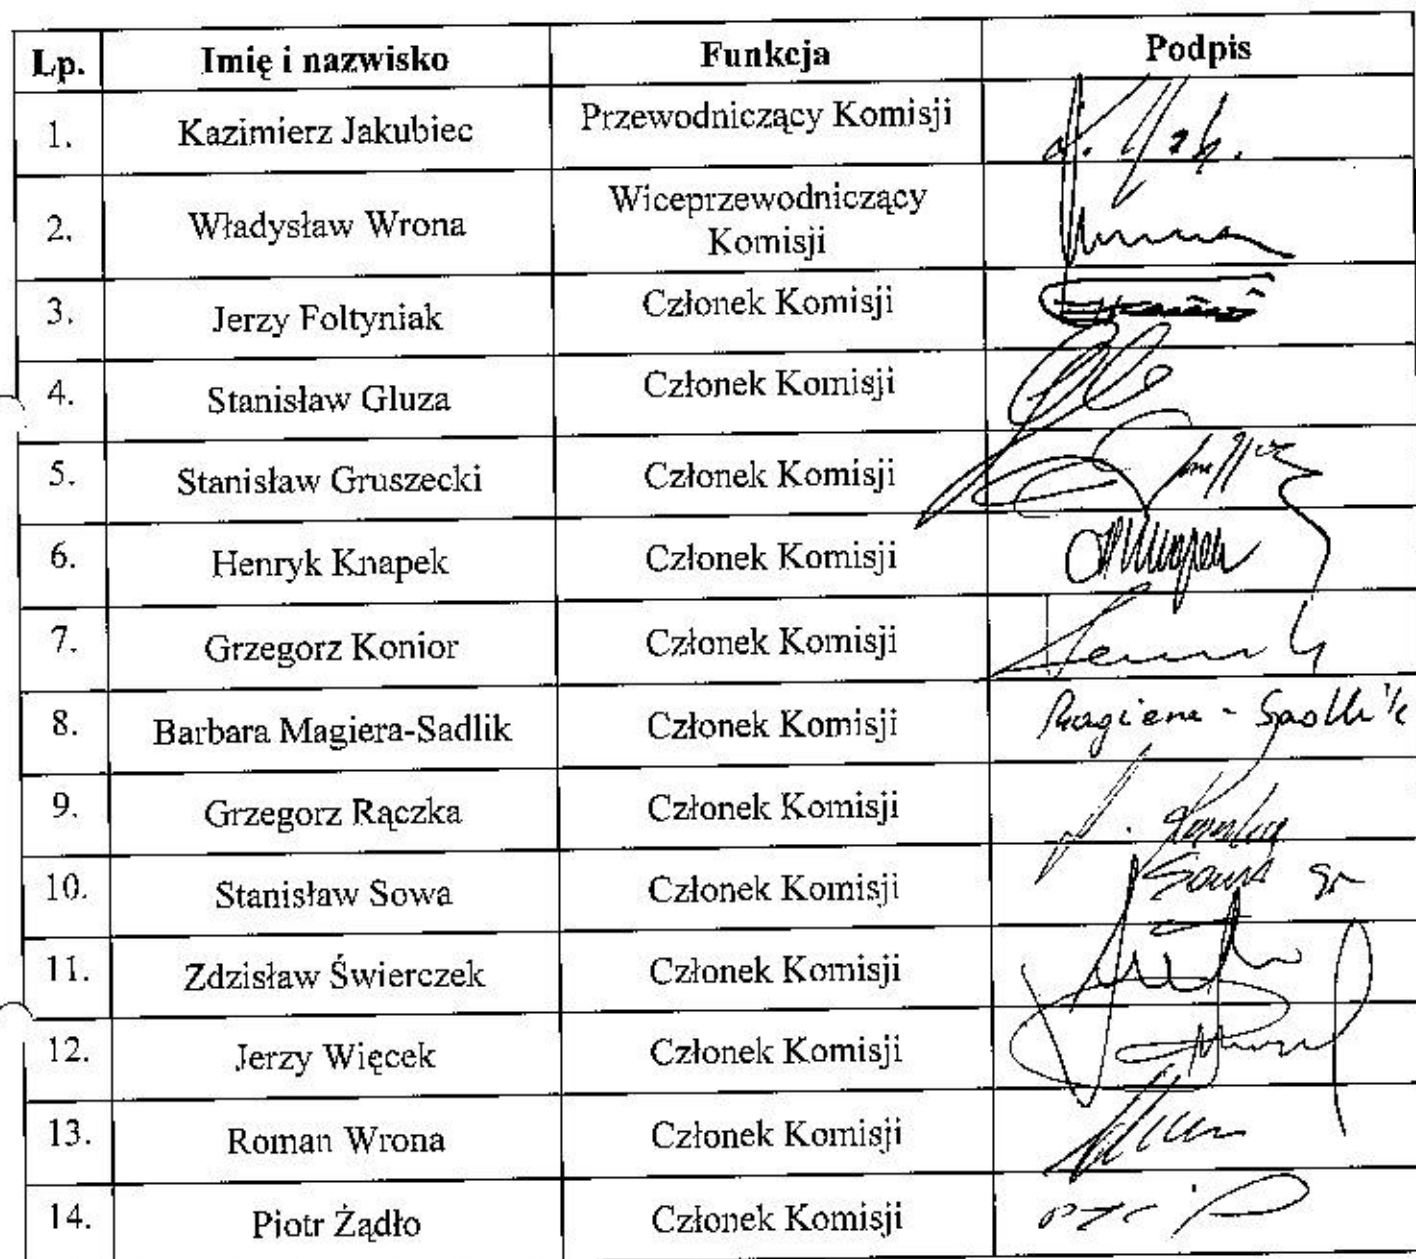 Lp. Imię i nazwisko Funkcja Podpis
1. Kazimierz Jakubiec Przewodniczący Komisji
2. Władysław Wrona Wiceprzewodniczący
Komisji
3. Jerzy Foltyniak Członek Komisji
4. Stanisław Gluza Członek Komisji
5. Stanisław Gruszecki Członek Komisji
6. Henryk Knapek Członek Komisji
7. Grzegorz Konior Członek Komisji
8. Barbara Magiera-Sadlik Członek Komisji Magiera-Sadlik
9. Grzegorz Rączka Członek Komisji
10. Stanisław Sowa Członek Komisji Sowa
11. Zdzisław Świerczek Członek Komisji
12. Jerzy Więcek Członek Komisji
13. Roman Wrona Członek Komisji
14. Piotr Żądło Członek Komisji